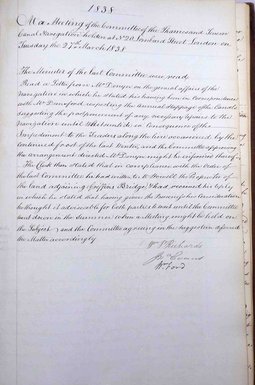 1838
At a Meeting of the Committee of the Thames and Severn
Canal Navigation holden at No 20 Lombard Street London on
Tuesday the 27th March 1838
The Minutes of the last Committee were read
Read a Letter from Mr Denyer on the general affairs of the
Navigation in which he stated his having been in correspondence
with Mr Dunsford respecting the Annual Stoppage of the Canal
suggesting the postponement of any necessary repairs to the
Navigation until Whitsuntide in Consequence of the
Impediment to the Traders along the line occasioned by the
continued frost of the last Winter, and the Committee approving
the arrangement directed Mr Denyer might be informed thereof
The Clerk then stated that in compliance with the Order of
the last Committee he had written to Powell the Proprietor of
the land adjoining Griffins Bridge, & had received his reply
in which he stated that having given the Inquiry his Consideration
he thought it advisable for both parties to wait until the Committee
went down in the Summer when a Meeting might be held on
the Subject, and the Committee agreeing in the suggestion deferred
the Matter accordingly
Richards
Evans
Wm Ford